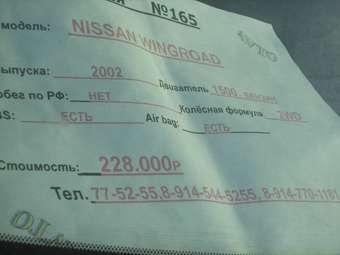 №165
модель: NISSAN WINGROAD
выпуска: 2002 Двигатель 1500, бензин
бег по РФ: НЕТ Колёсная формула 2WD
BS: ЕСТЬ Air bag: ЕСТЬ
Стоимость: 228.000Р
Тел. 77-52-55, 8-914-544-5255, 8-914-770-1181